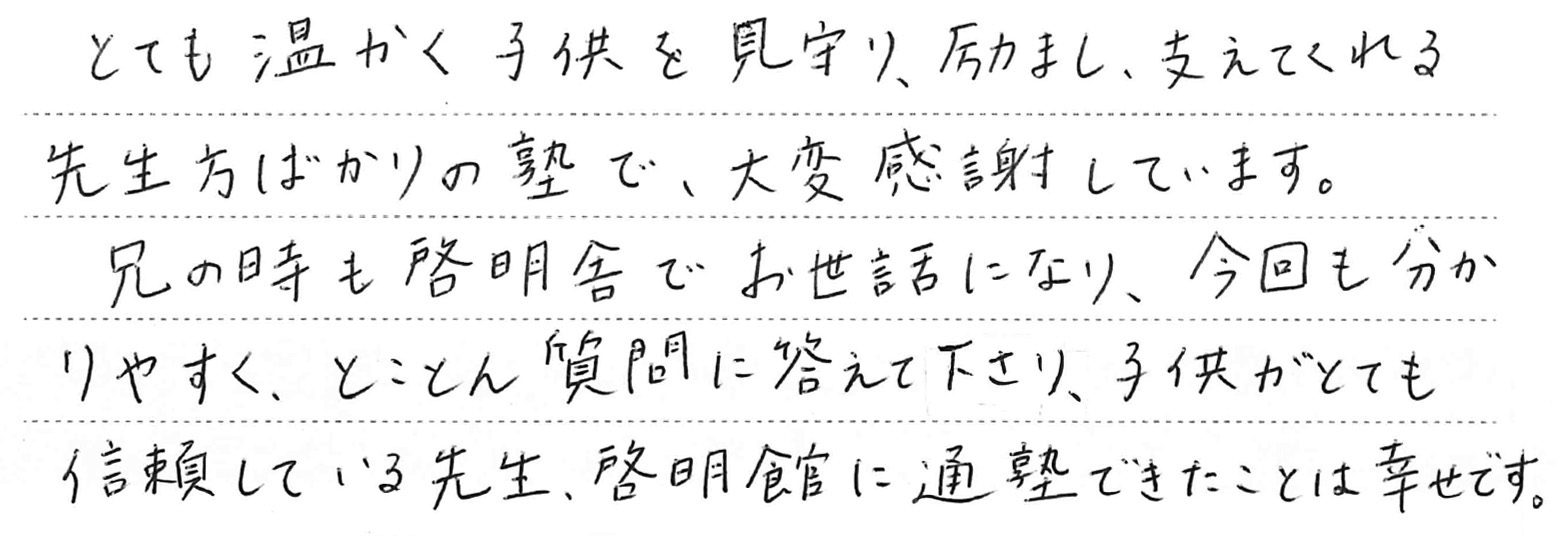 とても温かく子供を見守り、励まし、支えてくれる
先生方ばかりの塾で、大変感謝しています。
兄の時も啓明舎でお世話になり、今回も分か
りやすく、とことん質問に答えて下さり、子供がとても
信頼している先生、啓明館に通塾できたことは幸せです。